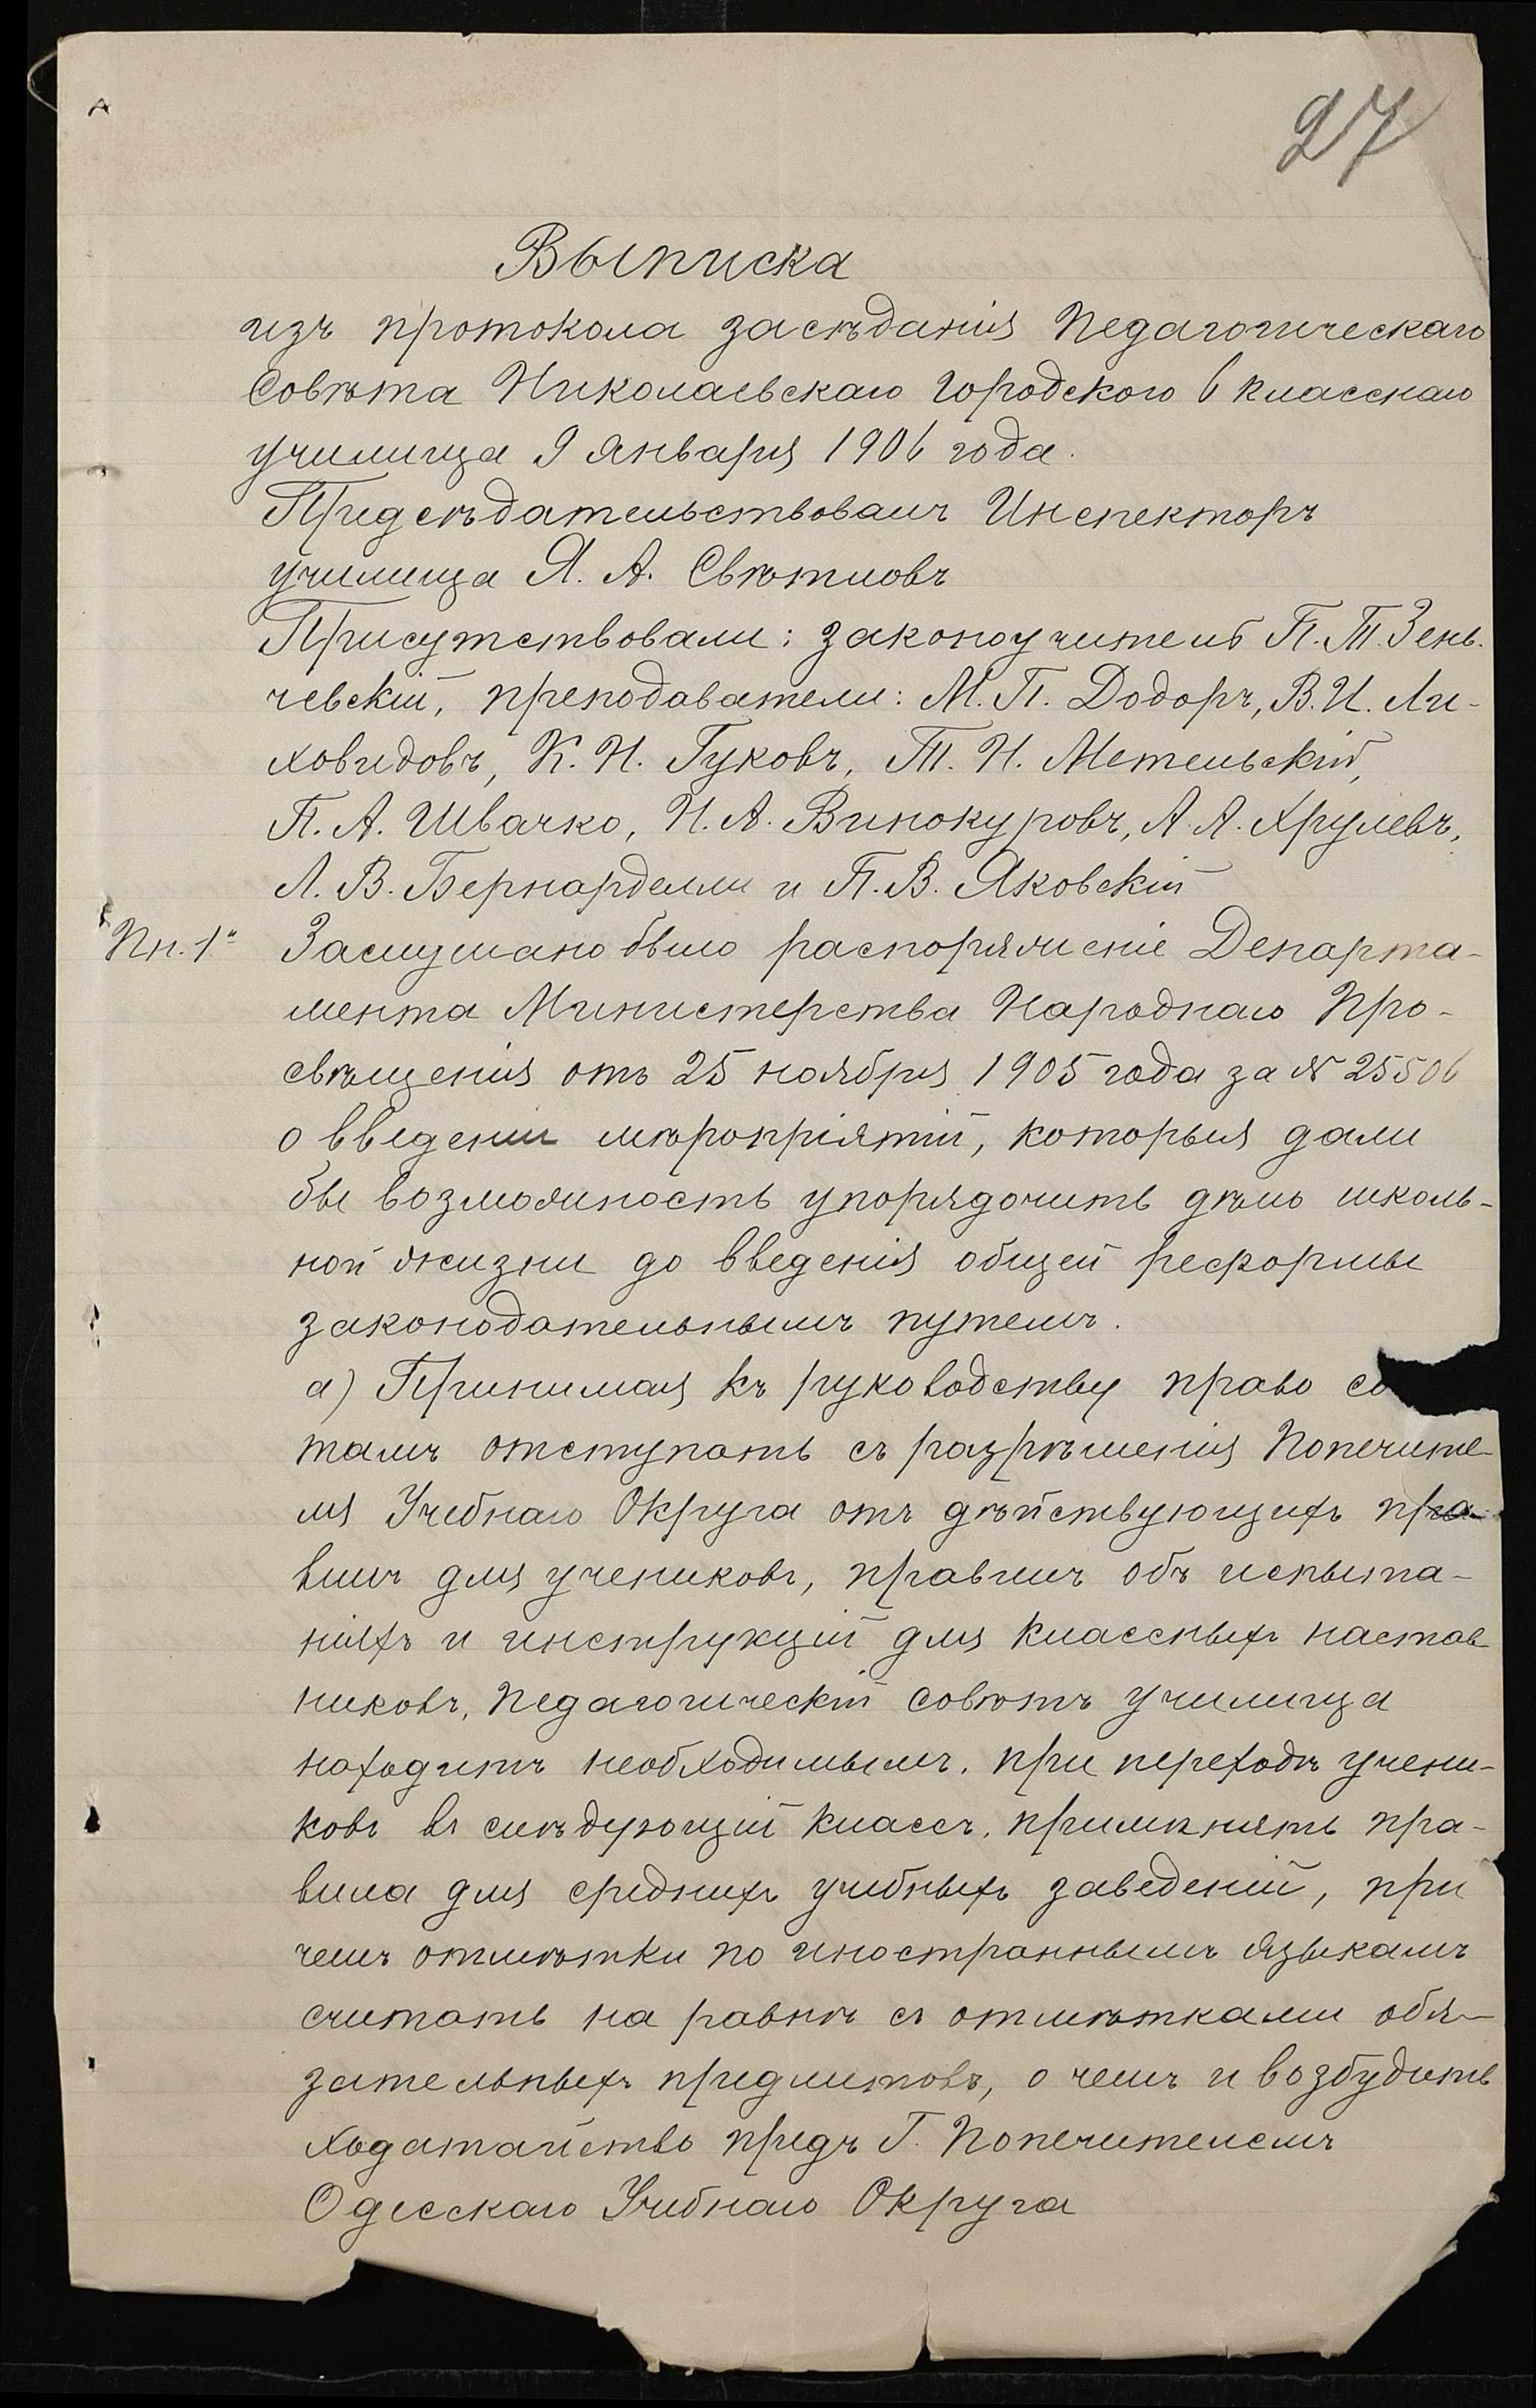 27
Выписка
изъ протокола засѣданія Педагогическаго
Совѣта Николаевскаго Городского 6 класснаго
училища 9 Января 1906 года.
Предсѣдательствовалъ Инспекторъ
училища Я. А. Свѣтловъ
Присутствовали: законоучитель П. Т. Зень-
чевскій, преподаватели: М. П. Додоръ, В. И. Ли-
ховидовъ, К. Н. Гуковъ, Т. Н. Метельскій,
П. А. Швачко, Н. А. Винокуровъ, А. А. Хрулевъ,
Л. В. Бернарделли и П. В. Яковскій
Пн. 1. Заслушано было распоряженіе Департа-
мента Министерства Народнаго Про-
свѣщенія отъ 25 ноября 1905 года за № 25506
о введеніи мѣропріятій, которыя дали
бы возможность упорядочить дѣло школь-
ной жизни до введенія общей реформы
законодательнымъ путемъ.
а) Принимая къ руководству право со
тамъ отступать съ разрѣшенія Попечите-
ля Учебнаго Округа отъ дѣйствующихъ пра-
вилъ для учениковъ, правилъ объ испыта-
ніяхъ и инструкцій для классныхъ настав-
никовъ, Педагогическій совѣтъ училища
находитъ необходимымъ, при переходѣ учени-
ковъ въ слѣдующій классъ, примѣнять пра-
вила для среднихъ учебныхъ заведеній, при
чемъ отмѣтки по иностраннымъ языкамъ
считать на равнѣ съ отмѣтками обя-
зательныхъ предметовъ, о чемъ и возбудить
ходатайство предъ Г. Попечителемъ
Одесскаго Учебнаго Округа